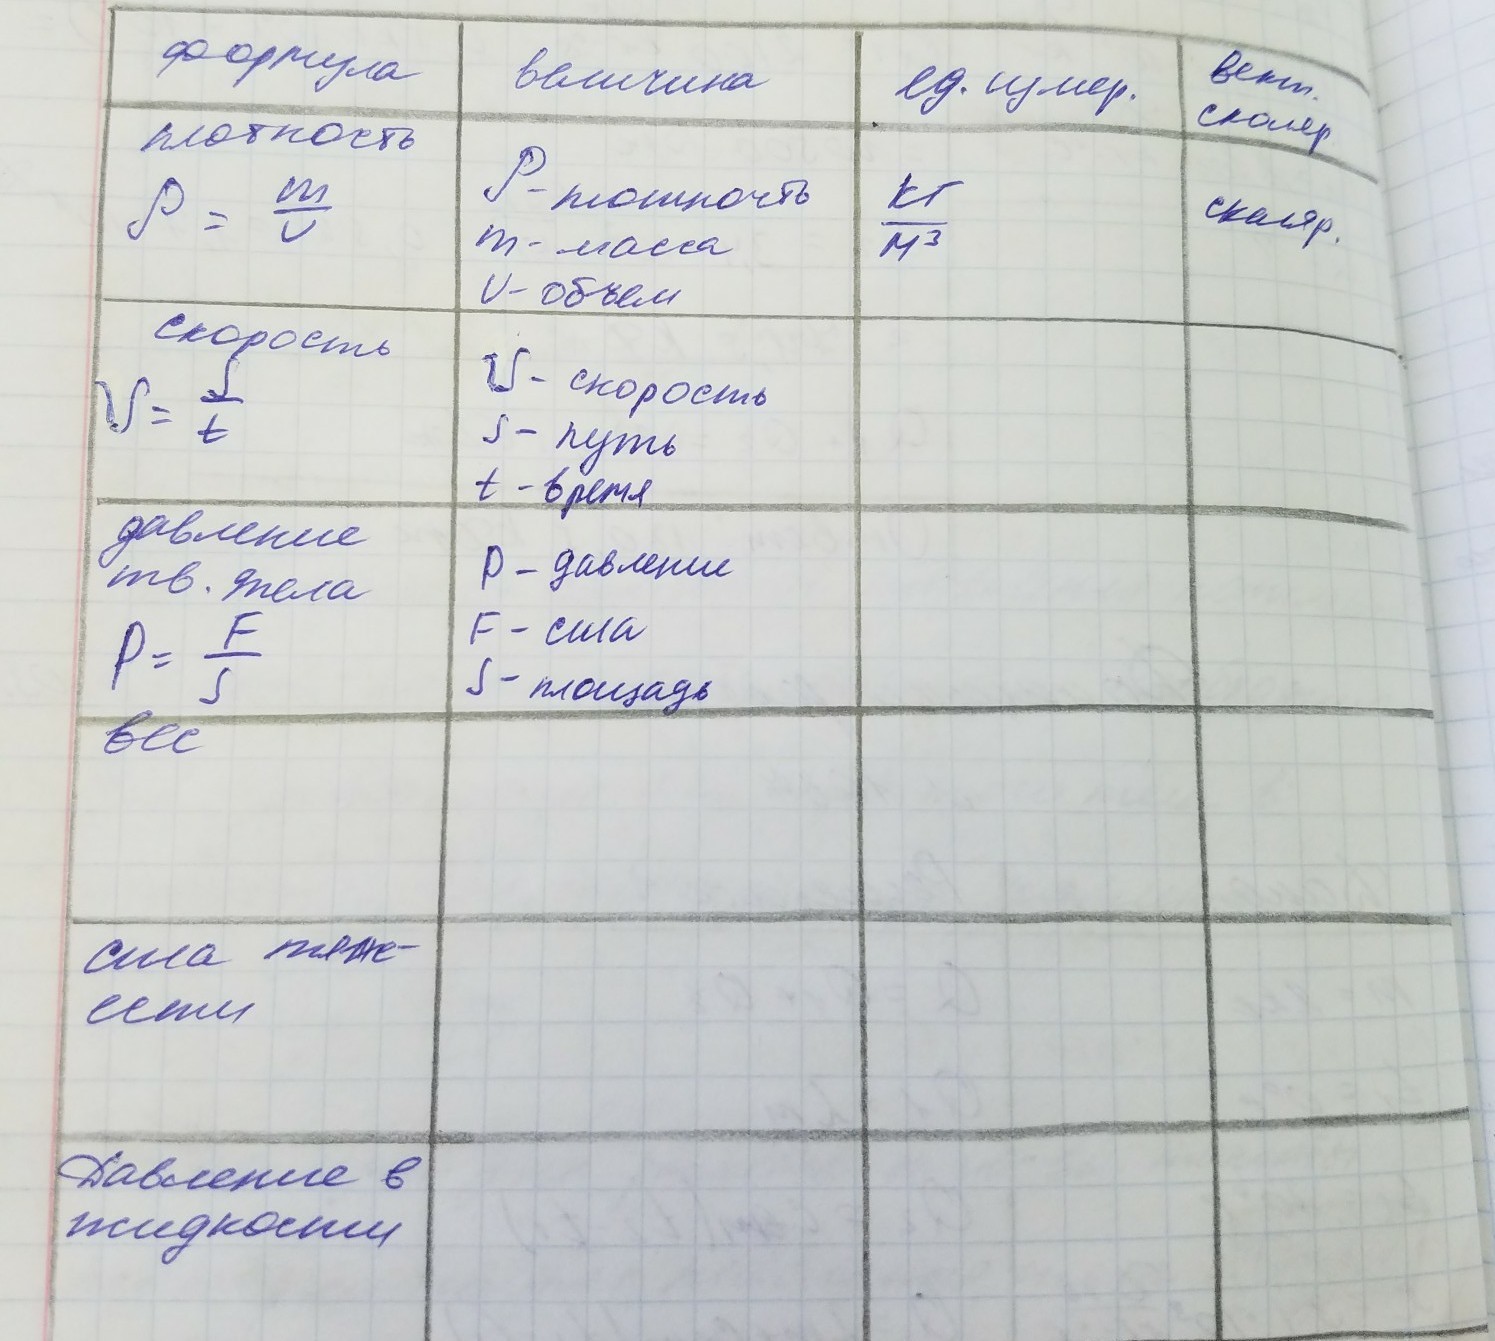 формула
величина
ед. измер.
вект.
скаляр
плотность
ρ = m/V
ρ - плотночть
m - масса
V - объем
кг/м³
скаляр.
скорость
V = S/t
V - скорость
S - путь
t - время
давление
тв. тела
P = F/S
P - давление
F - сила
S - площадь
вес
сила тяже-
сти
Давление в
жидкости